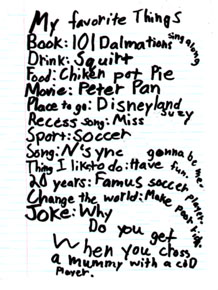 My favorite Things
Book: 101 Dalmations sing along
Drink: Squirt
Food: Chiken pot Pie
Movie: Peter Pan
Place to go: Disneyland
Recess Song: Miss Suzy
Sport: Soccer
Song: N'sync gonna be me.
Thing I like to do: Have fun.
20 years: Famus soccer player.
Change the world: Make peat right.
Joke: Why
Do you get
When you cross
a mummy with a CD
Player.